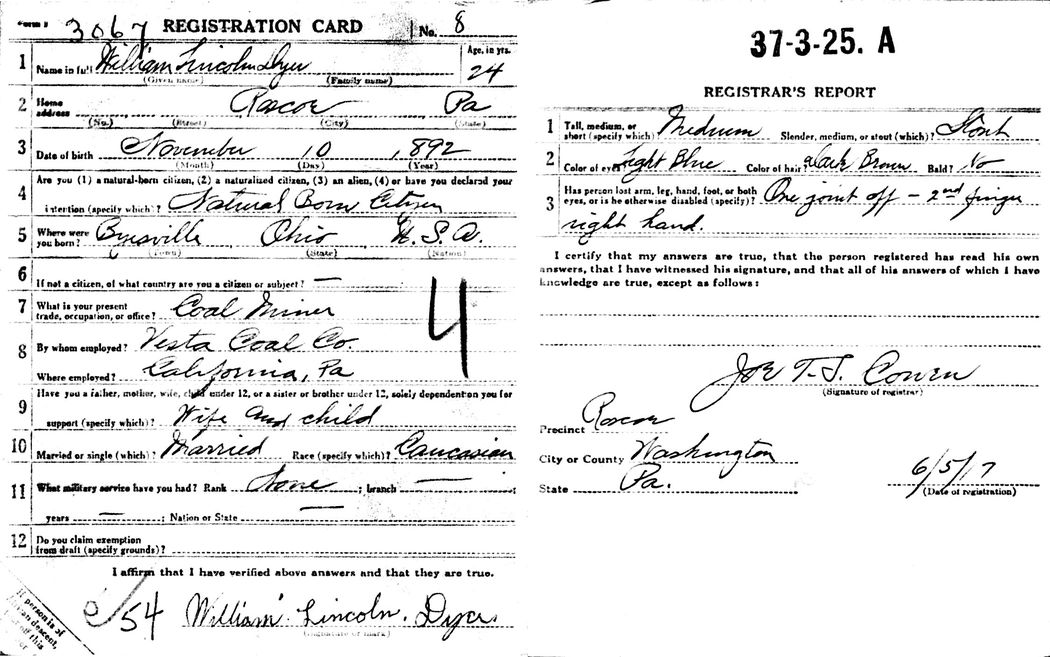 Form 1 3067 REGISTRATION CARD No. 8
1 Name in full William Lincoln Dyer Age, in yrs. 24
(Given name) (Family name)
2 Home address Roscoe Pa
(No.) (Street) (City) (State)
3 Date of birth November 10 1892
(Month) (Day) (Year)
4 Are you (1) a natural-born citizen, (2) a naturalized citizen, (3) an alien, (4) or have you declared your
intention (specify which)? Natural Born Citizen
5 Where were you born? Byesville Ohio U.S.A.
(Town) (State) (Nation)
6 If not a citizen, of what country are you a citizen or subject? —
7 What is your present trade, occupation, or office? Coal Miner
8 By whom employed? Vesta Coal Co.
Where employed? California, Pa
4
9 Have you a father, mother, wife, child under 12, or a sister or brother under 12, solely dependent on you for
support (specify which)? Wife and child
10 Married or single (which)? Married Race (specify which)? Caucasian
11 What military service have you had? Rank None ; branch — ;
years — ; Nation or State —
12 Do you claim exemption
from draft (specify grounds)?
I affirm that I have verified above answers and that they are true.
54 William Lincoln Dyer
(Signature or mark)
If person is of
descent,
off this
37-3-25. A
REGISTRAR'S REPORT
1 Tall, medium, or short (specify which)? Medium Slender, medium, or stout (which)? Stout
2 Color of eyes? Light Blue Color of hair? Dark Brown Bald? No
3 Has person lost arm, leg, hand, foot, or both
eyes, or is he otherwise disabled (specify)? One joint off – 2nd finger
right hand.
I certify that my answers are true, that the person registered has read his own
answers, that I have witnessed his signature, and that all of his answers of which I have
knowledge are true, except as follows:
Joe T.S. Cowen
(Signature of registrar)
Precinct Roscoe
City or County Washington
State Pa.
6/5/17
(Date of registration)